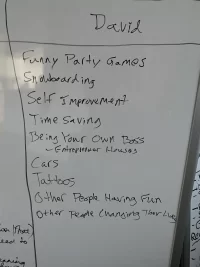 David
Funny Party Games
Snowboarding
Self Improvement
Time Saving
Being Your Own Boss
- Entrepreneur Houses
Cars
Tattoos
Other People Having Fun
Other People Changing Their